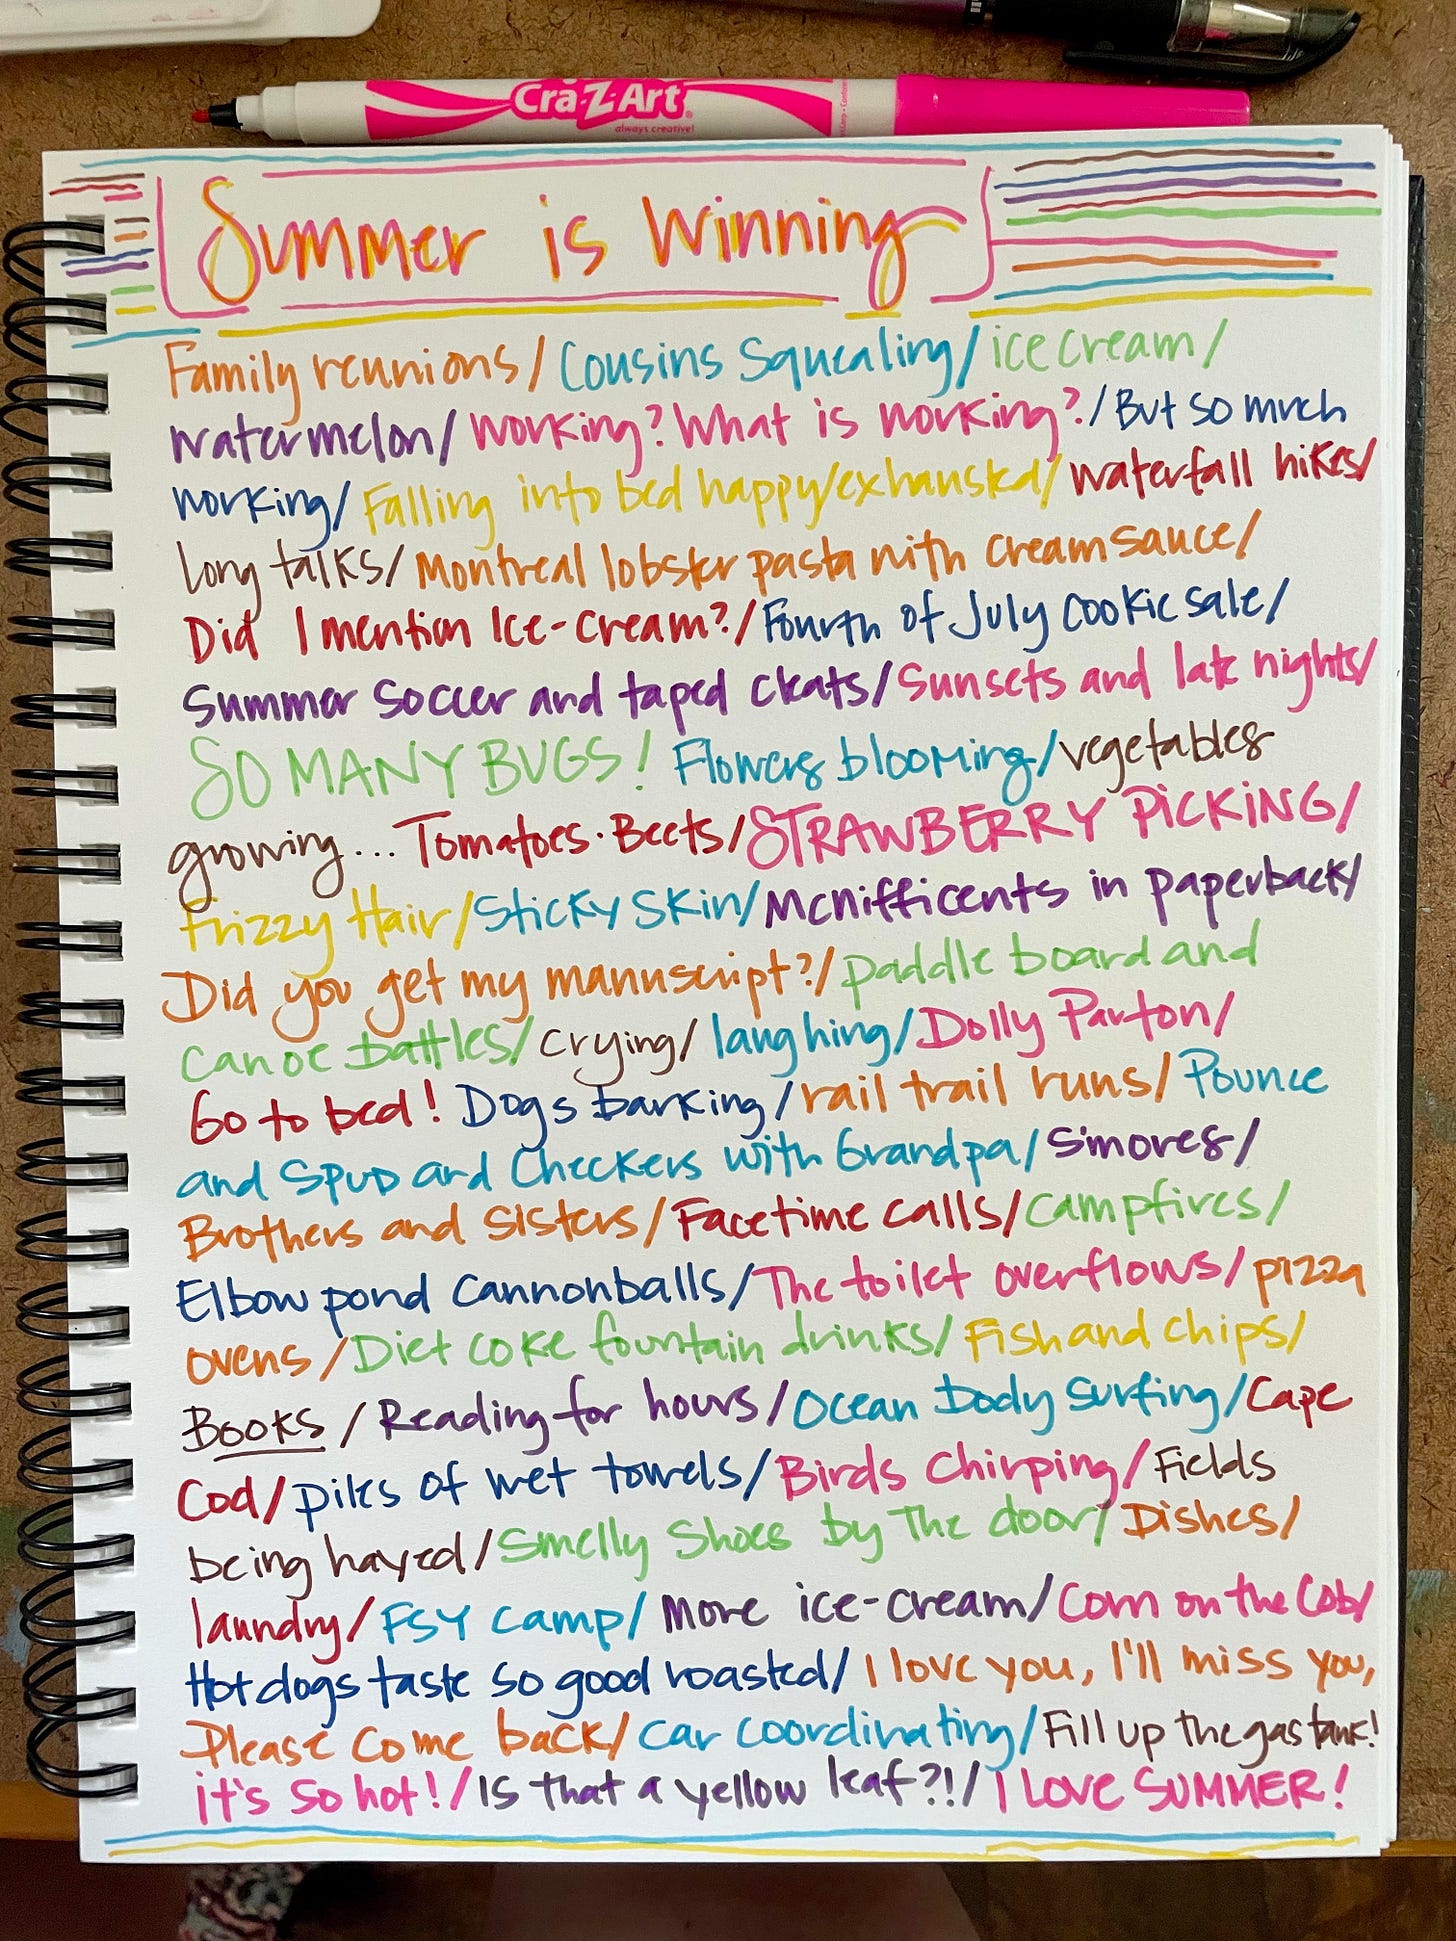 Cra-Z-Art
always creative!
Summer is Winning
Family reunions / Cousins Squealing / ice cream /
watermelon / Working? What is working? / But so much
working / Falling into bed happy/exhausted / waterfall hikes /
long talks / Montreal lobster pasta with cream sauce /
Did I mention Ice-Cream? / Fourth of July cookie sale /
Summer Soccer and taped cleats / Sunsets and late nights /
SO MANY BUGS! Flowers blooming / vegetables
growing... Tomatoes · Beets / STRAWBERRY PICKING /
Frizzy Hair / Sticky Skin / Mcnifficents in paperback /
Did you get my manuscript? / paddle board and
canoe battles / crying / laughing / Dolly Parton /
Go to bed! Dogs barking / rail trail runs / Pounce
and Spud and Checkers with Grandpa / S'mores /
Brothers and Sisters / Facetime calls / Campfires /
Elbow pond cannonballs / The toilet overflows / pizza
ovens / Diet coke fountain drinks / Fish and chips /
Books / Reading for hours / Ocean body surfing / Cape
Cod / piles of wet towels / Birds Chirping / Fields
being hayed / Smelly Shoes by The door / Dishes /
laundry / FSY camp / More ice-cream / Corn on the Cob /
Hot dogs taste so good roasted / I love you, I'll miss you,
Please come back / Car coordinating / Fill up the gas tank!
it's so hot! / Is that a yellow leaf?! / I LOVE SUMMER!